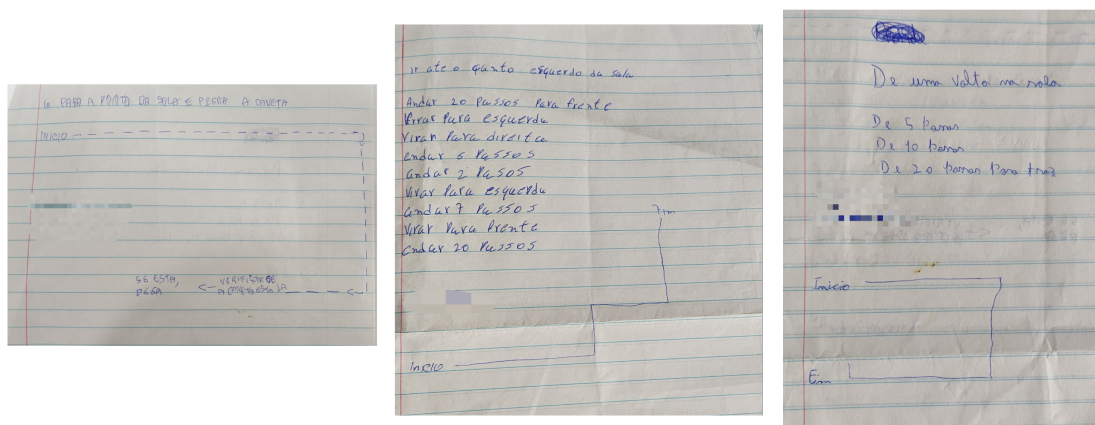 PARA A PORTA DA SALA E PEGAR A CANETA
INICIO
SE ESTA,
PEGA
VERIFIQUE
ir até o quanto esquerdo da sala
Andar 20 Passos Para frente
Virar Para esquerda
Virar Para direita
andar 6 PASSOS
andar 2 PASSOS
Virar Para esquerda
andar 7 PASSOS
Virar Para frente
andar 20 PASSOS
Fim
Inicio
De uma volta na sala
De 5 passos
De 10 passos
De 20 passos Para traz
Inicio
Fim